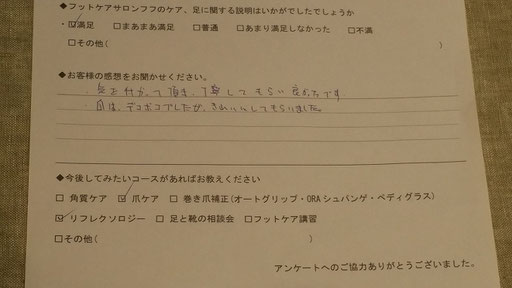 ◆フットケアサロンフフのケア、足に関する説明はいかがでしたでしょうか
・☑満足 □まあまあ満足 □普通 □あまり満足しなかった □不満
□その他( )
◆お客様の感想をお聞かせください。
て頂き、丁寧してもらい良かったです。
・爪は、デコボコでしたが、きれいにしてもらいました。
◆今後してみたいコースがあればお教えください
□角質ケア ☑爪ケア □巻き爪補正(オートグリップ・ORAシュパンゲ・ペディグラス)
☑リフレクソロジー □足と靴の相談会 □フットケア講習
□その他( )
アンケートへのご協力ありがとうございました。